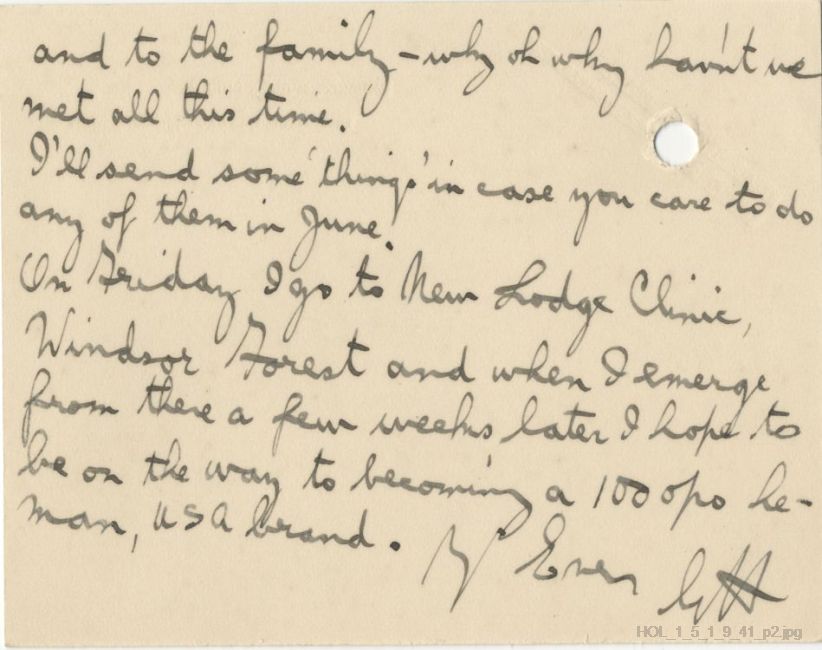 and to the family – why oh why havn't we
met all this time.
I'll send some 'things' in case you care to do
any of them in June.
On Friday I go to New Lodge Clinic,
Windsor Forest and when I emerge
from there a few weeks later I hope to
be on the way to becoming a 100 o/o he-
man, USA brand.
Yrs Ever GH
HOL_1_5_1_9_41_p2.jpg